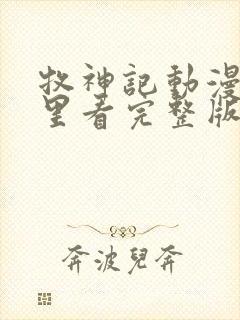 牧神記動漫
里看完整版
奔波兒奔